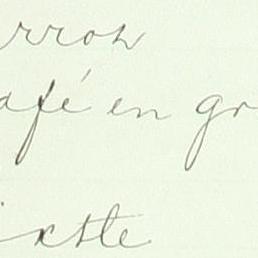 arroz
café en gr
ixtle